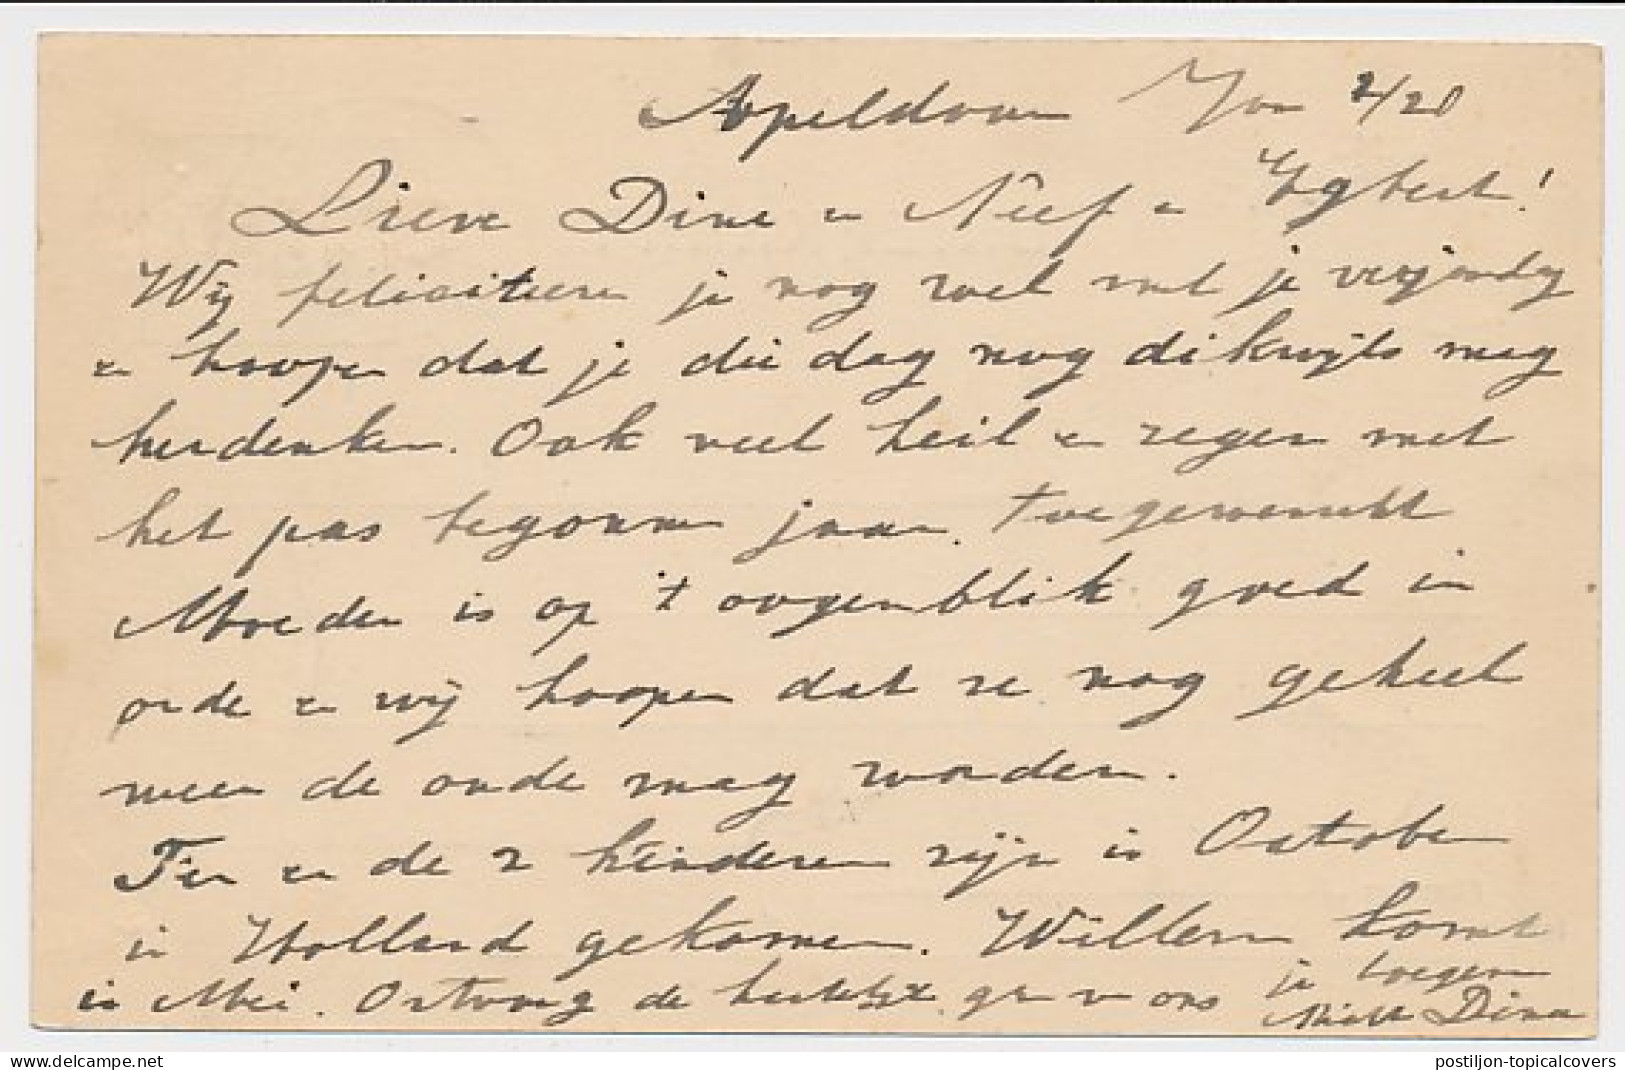 Apeldoorn Jan 2/20
Lieve Dine en Neef en Egbert!
Wij feliciteeren je nog wel met je verjaardag
en hoopen dat je die dag nog dikwijls mag
herdenken. Ook veel heil en zegen met
het pas begonnen jaar toegewenscht
Moeder is op 't oogenblik goed in
orde en wij hoopen dat ze nog geheel
weer de oude mag worden.
Fie en de 2 kinderen zijn in October
in Holland gekomen. Willem komt
in Mei. Ontvang de hartelijke gr v ons je toegen
Dina
delcampe.net
postiljon-topicalcovers